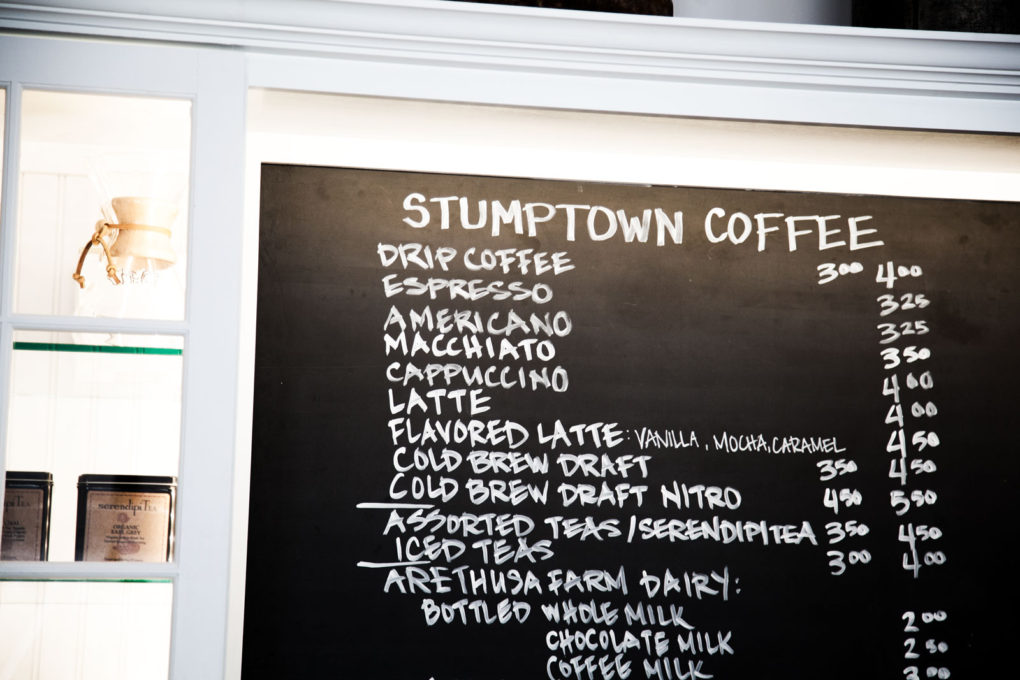 STUMPTOWN COFFEE
DRIP COFFEE 3⁰⁰ 4⁰⁰
ESPRESSO 3²⁵
AMERICANO 3²⁵
MACCHIATO 3⁵⁰
CAPPUCCINO 4⁰⁰
LATTE 4⁰⁰
FLAVORED LATTE: VANILLA, MOCHA, CARAMEL 4⁵⁰
COLD BREW DRAFT 3⁵⁰ 4⁵⁰
COLD BREW DRAFT NITRO 4⁵⁰ 5⁵⁰
ASSORTED TEAS/SERENDIPITEA 3⁵⁰ 4⁵⁰
ICED TEAS 3⁰⁰ 4⁰⁰
ARETHUSA FARM DAIRY:
BOTTLED WHOLE MILK 2⁰⁰
CHOCOLATE MILK 2⁵⁰
COFFEE MILK 3⁰⁰
serendipiTea
ORGANIC
EARL GREY